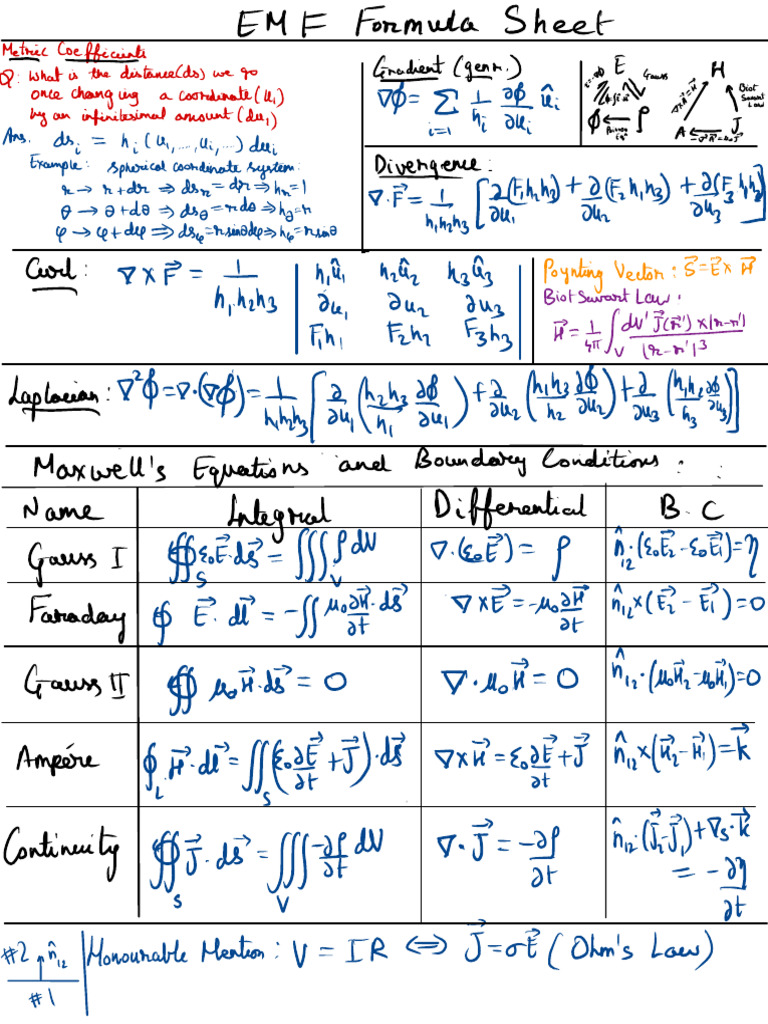 EMF Formula Sheet
Metric Coefficients
Q: What is the distance(ds) we go
once changing a coordinate(u₁)
by an infinitesimal amount (du₁)
Ans. dsᵢ = hᵢ(u₁,...,uᵢ,...)duᵢ
Example: Spherical coordinate system:
r → r+dr ⇒ dsᵣ = dr ⇒ hᵣ=1
θ → θ+dθ ⇒ ds_θ = rdθ ⇒ h_θ=r
φ → φ+dφ ⇒ ds_φ = rsinθdφ ⇒ h_φ=rsinθ
Gradient (genr.)
∇ϕ = Σ_{i=1} 1/hᵢ ∂ϕ/∂uᵢ ûᵢ
E
Gauss
ϕ ρ
H
Biot
Savart
Law
A J
Divergence:
∇·F⃗ = 1/(h₁h₂h₃) [∂/∂u₁(F₁h₂h₃) + ∂/∂u₂(F₂h₁h₃) + ∂/∂u₃(F₃h₁h₂)]
Curl: ∇×F⃗ = 1/(h₁h₂h₃) | h₁û₁ h₂û₂ h₃û₃ |
| ∂u₁ ∂u₂ ∂u₃ |
| F₁h₁ F₂h₂ F₃h₃ |
Poynting Vector: S⃗=E⃗×H⃗
Biot Savart Law:
H⃗ = 1/4π ∫_V dV' J⃗(r⃗')×(r-r')/|r-r'|³
Laplacian: ∇²ϕ=∇·(∇ϕ)= 1/(h₁h₂h₃) [∂/∂u₁(h₂h₃/h₁ ∂ϕ/∂u₁) + ∂/∂u₂(h₁h₃/h₂ ∂ϕ/∂u₂) + ∂/∂u₃(h₁h₂/h₃ ∂ϕ/∂u₃)]
Maxwell's Equations and Boundary Conditions:
Name Integral Differential B.C
Gauss I ∯_S ε₀E⃗·ds⃗ = ∭_V ρdV ∇·(ε₀E⃗) = ρ n̂₁₂·(ε₀E⃗₂-ε₀E⃗₁)=η
Faraday ∮ E⃗·dl⃗ = -∬ μ₀∂H⃗/∂t·ds⃗ ∇×E⃗=-μ₀∂H⃗/∂t n̂₁₂×(E⃗₂-E⃗₁)=0
Gauss II ∯ μ₀H⃗·ds⃗ = 0 ∇·μ₀H⃗=0 n̂₁₂·(μ₀H⃗₂-μ₀H⃗₁)=0
Ampére ∮_L H⃗·dl⃗ = ∬_S (ε₀∂E⃗/∂t+J⃗)·ds⃗ ∇×H⃗=ε₀∂E⃗/∂t+J⃗ n̂₁₂×(H⃗₂-H⃗₁)=k⃗
Continuity ∯_S J⃗·ds⃗ = ∭_V -∂ρ/∂t dV ∇·J⃗ = -∂ρ/∂t n̂₁₂·(J⃗₂-J⃗₁)+∇s·k⃗
= -∂η/∂t
#2 n̂₁₂
#1
Honourable Mention: V = IR ⟺ J⃗=σE⃗ (Ohm's Law)